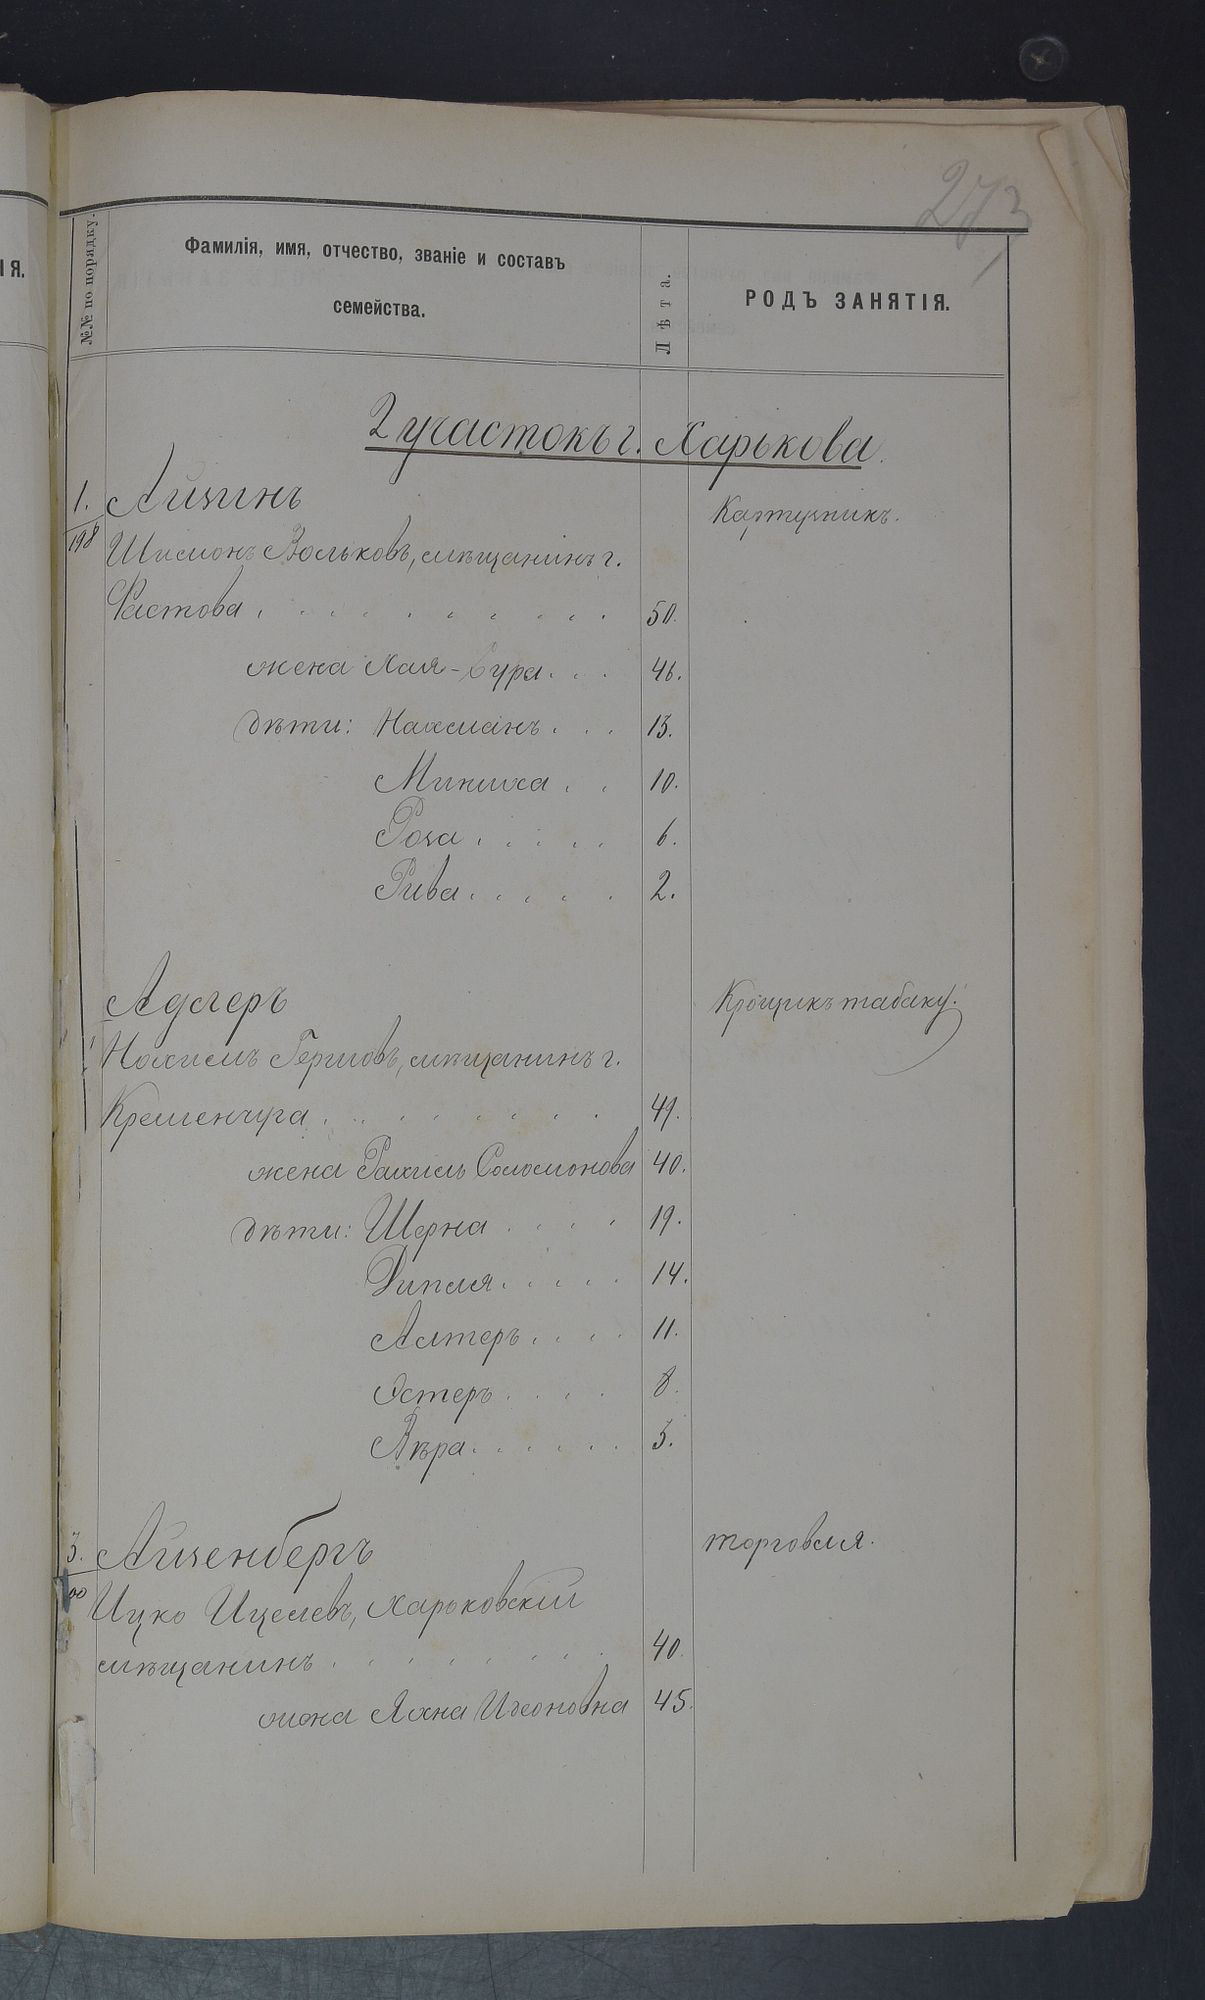 273
ІЯ.
№№ по порядку.
Фамилія, имя, отчество, званіе и составъ
семейства.
Лѣта.
РОДЪ ЗАНЯТІЯ.
2 участокъ г. Харькова.
1. Айзинъ Картузникъ.
198 Шимонъ Вольковъ, мѣщанинъ г.
Фастова . . . . . . . . . 50.
жена Хая-Сура . . . 46.
дѣти: Нахманъ . . . 13.
Миниха . . 10.
Роза . . . . . 6.
Рива . . . . . 2.
Адлеръ Крощикъ табаку.
Нохимъ Гершовъ, мѣщанинъ г.
Кременчуга . . . . . . . . 49.
жена Рахиль Соломонова 40.
дѣти: Шерна . . . . 19.
Дипля . . . . . 14.
Алтеръ . . . . 11.
Эстеръ . . . . 8.
Вѣра . . . . . . 3.
3. Айзенбергъ торговля.
00 Ицко Ицелевъ, Харьковскій
мѣщанинъ . . . . . . . . 40.
жена Яхна Ихоновна 45.